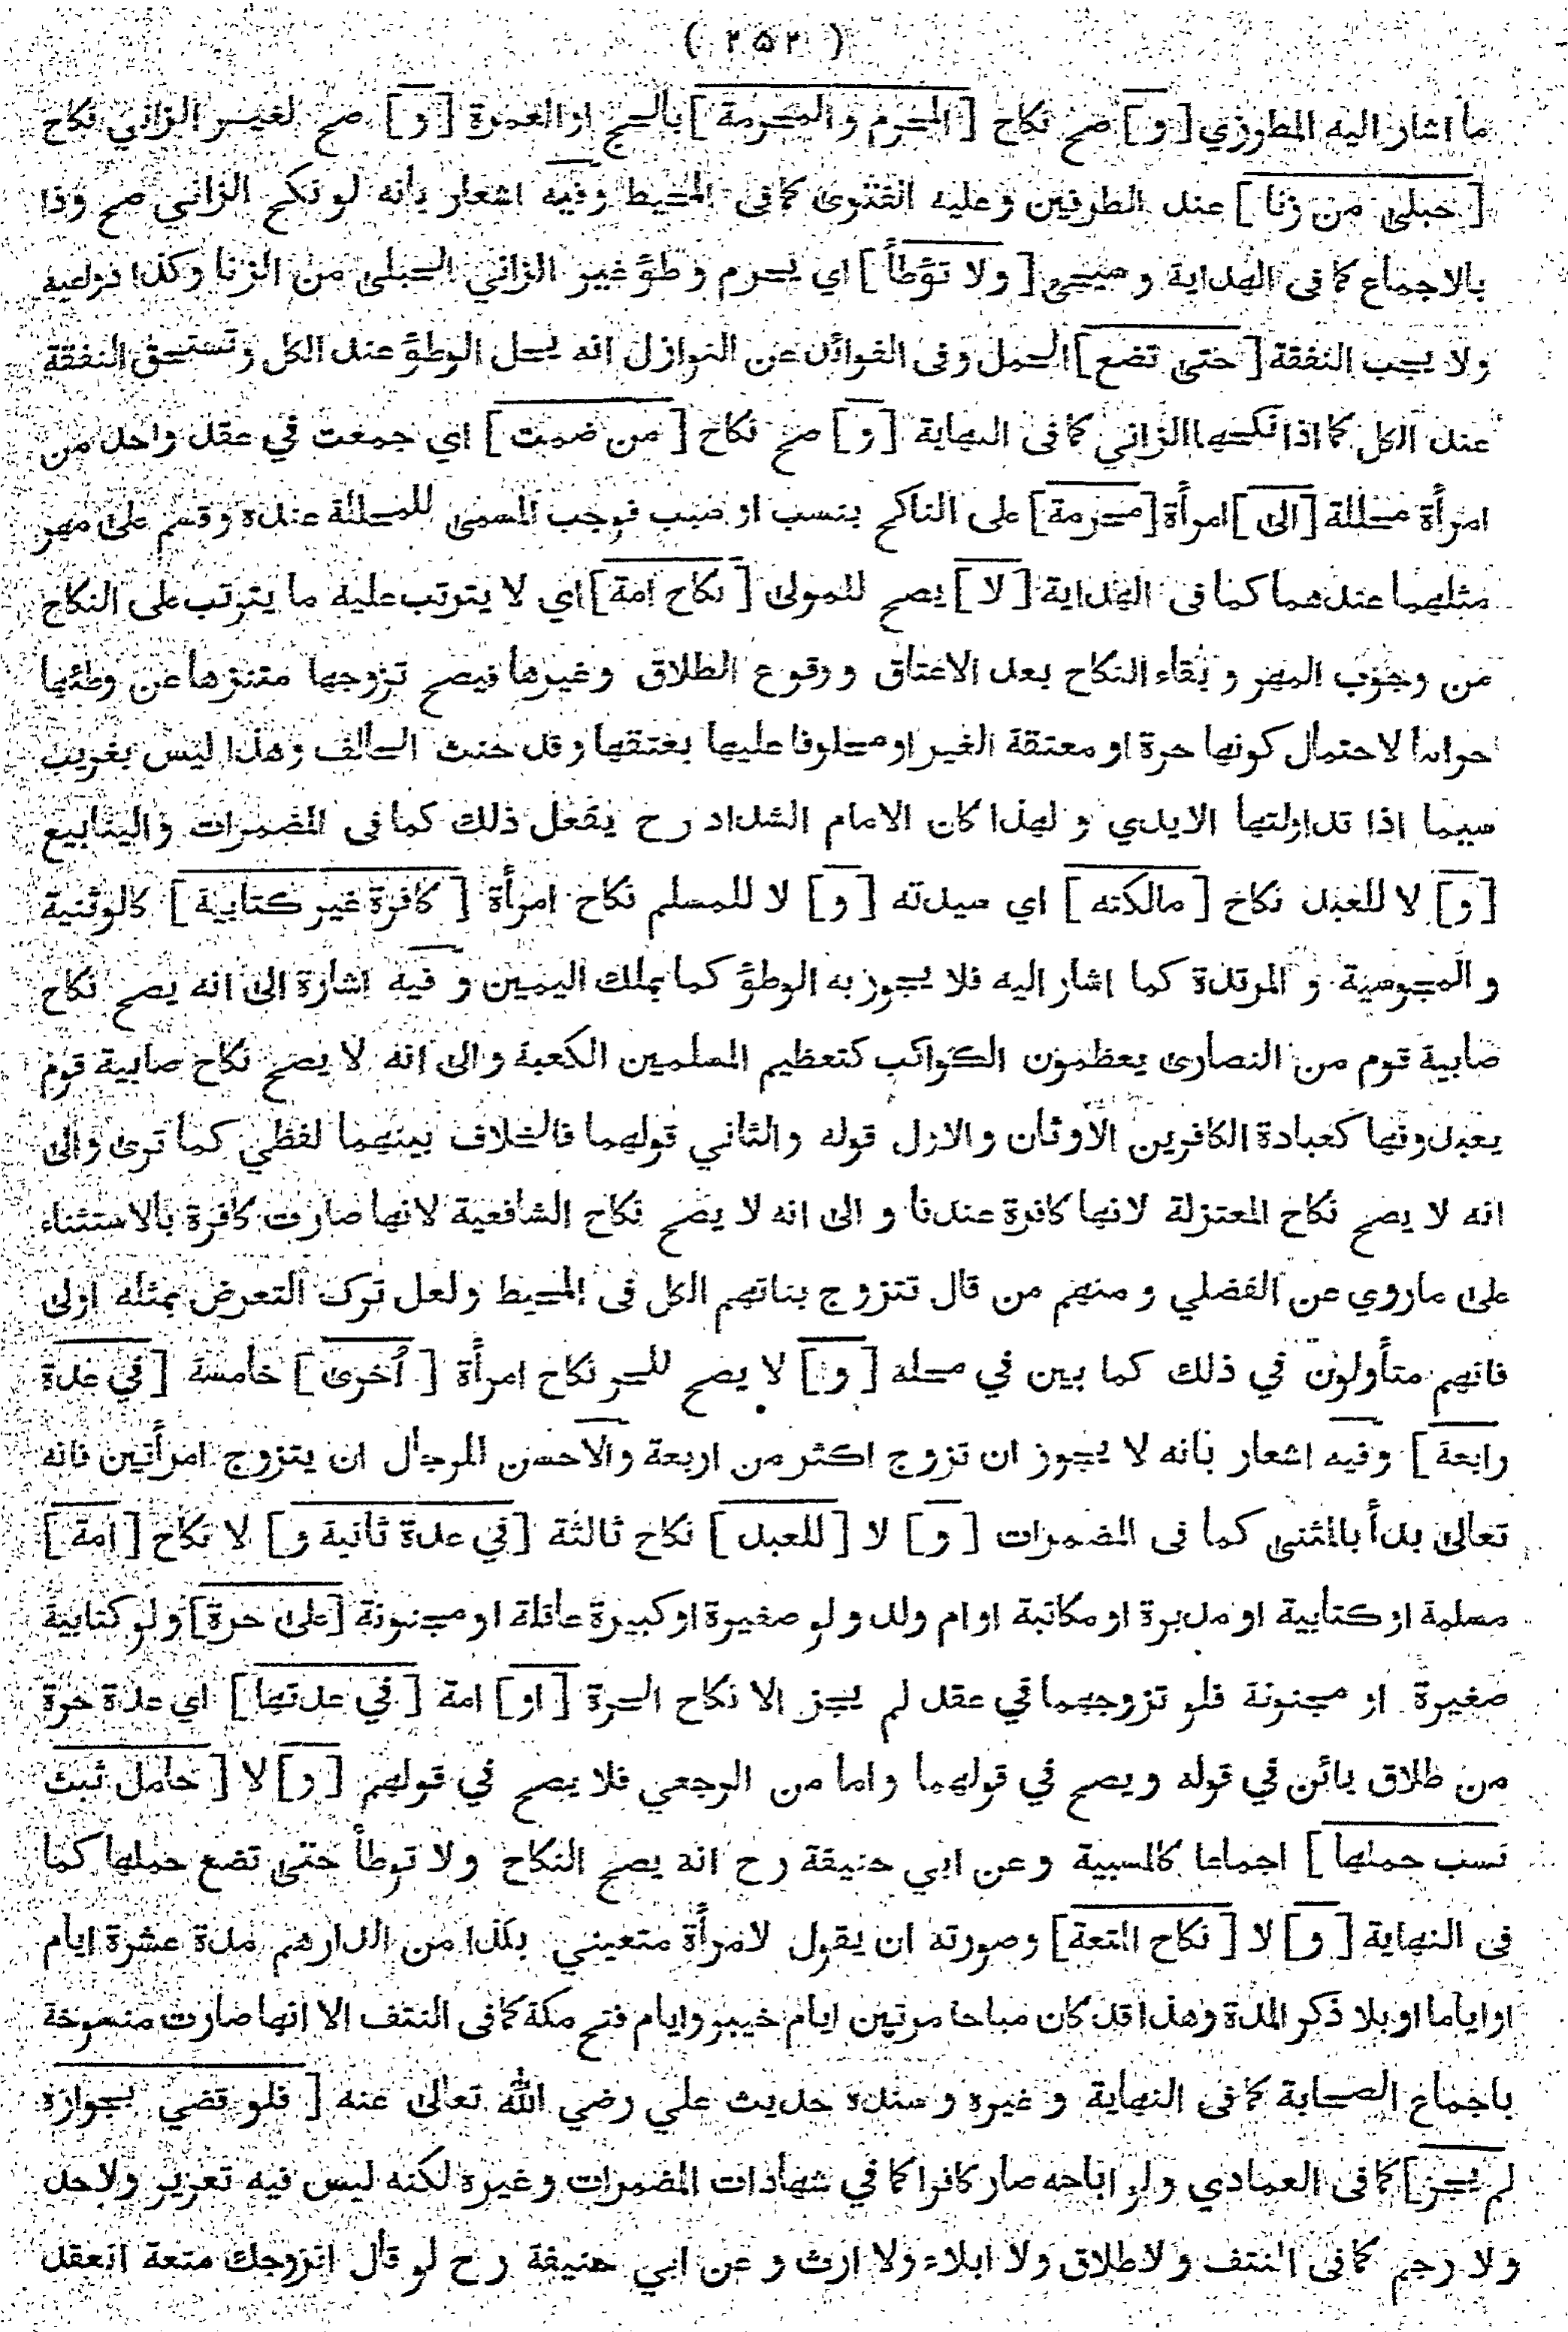 ( ٢٥٢ )
ما اشار اليه المطرزي [ و ] صح نكاح [ المحرم و المحرمة ] بالحج او العمرة [ و ] صح لغير الزاني نكاح
[ حبلى من زنا ] عند الطرفين و عليه الفتوى كما فى المحيط وفيه اشعار بانه لو نكح الزاني صح وذا
بالاجماع كما فى الهداية و سيجي [ ولا توطأ ] اي يحرم وطؤ غير الزاني الحبلى من الزنا وكذا دواعيه
ولا يجب النفقة [ حتى تضع ] الحمل وفى الفوائد عن النوازل انه يحل الوطؤ عند الكل وتستحق النفقة
عند الكل كما اذا نكحها الزاني كما فى النهاية [ و ] صح نكاح [ من ضمت ] اي جمعت في عقد واحد من
امرأة محللة [ الى ] امرأة [ محرمة ] على الناكح بنسب او سبب فوجب المسمى للمحللة عنده وقسم على مهر
مثلهما عندهما كما فى الهداية [ لا ] يصح للمولى [ نكاح امة ] اي لا يترتب عليه ما يترتب على النكاح
من وجوب المهر و بقاء النكاح بعد الاعتاق و وقوع الطلاق وغيرها فيصح تزوجها متنزها عن وطئها
حراما لاحتمال كونها حرة او معتقة الغير او محلوفا عليها بعتقها وقد حنث الحالف وهذا ليس بغريب
سيما اذا تداولتها الايدي و لهذا كان الامام الشداد رح يفعل ذلك كما فى المضمرات والينابيع
[ و ] لا للعبد نكاح [ مالكته ] اي سيدته [ و ] لا للمسلم نكاح امرأة [ كافرة غير كتابية ] كالوثنية
و المجوسية و المرتدة كما اشار اليه فلا يجوز به الوطؤ كما بملك اليمين و فيه اشارة الى انه يصح نكاح
صابية قوم من النصارى يعظمون الكواكب كتعظيم المسلمين الكعبة و الى انه لا يصح نكاح صابية قوم
يعبدونها كعبادة الكافرين الاوثان والاول قوله والثاني قولهما فالخلاف بينهما لفظي كما ترى والى
انه لا يصح نكاح المعتزلة لانها كافرة عندنا و الى انه لا يصح نكاح الشافعية لانها صارت كافرة بالاستثناء
على ماروي عن الفضلي و منهم من قال تتزوج بناتهم الكل فى المحيط ولعل ترك التعرض بمثله اولى
فانهم متأولون في ذلك كما بين في محله [ و ] لا يصح للحر نكاح امرأة [ أخرى ] خامسة [ في عدة
رابعة ] وفيه اشعار بانه لا يجوز ان تزوج اكثر من اربعة والاحسن للرجال ان يتزوج امرأتين فانه
تعالى بدأ بالمثنى كما فى المضمرات [ و ] لا [ للعبد ] نكاح ثالثة [ في عدة ثانية و ] لا نكاح [ امة ]
مسلمة او كتابية او مدبرة او مكاتبة او ام ولد و لو صغيرة او كبيرة عاقلة او مجنونة [ على حرة ] ولو كتابية
صغيرة او مجنونة فلو تزوجهما في عقد لم يجز الا نكاح الحرة [ او ] امة [ في عدتها ] اي عدة حرة
من طلاق بائن في قوله ويصح في قولهما واما من الرجعي فلا يصح في قولهم [ و ] لا [ حامل ثبت
نسب حملها ] اجماعا كالمسبية وعن ابي حنيفة رح انه يصح النكاح ولا توطأ حتى تضع حملها كما
فى النهاية [ و ] لا [ نكاح المتعة ] وصورته ان يقول لامرأة متعيني بكذا من الدارهم مدة عشرة ايام
او اياما او بلا ذكر المدة وهذا قد كان مباحا مرتين ايام خيبر وايام فتح مكة كما فى النتف الا انها صارت منسوخة
باجماع الصحابة كما فى النهاية و غيره و سنده حديث علي رضي الله تعالى عنه [ فلو قضي بجوازه
لم يجز ] كما فى العمادي ولو اباحه صار كافرا كما في شهادات المضمرات وغيره لكنه ليس فيه تعزير ولاحد
ولا رجم كما فى النتف ولا طلاق ولا ايلاء ولا ارث و عن ابي حنيفة رح لو قال اتزوجك متعة انعقد